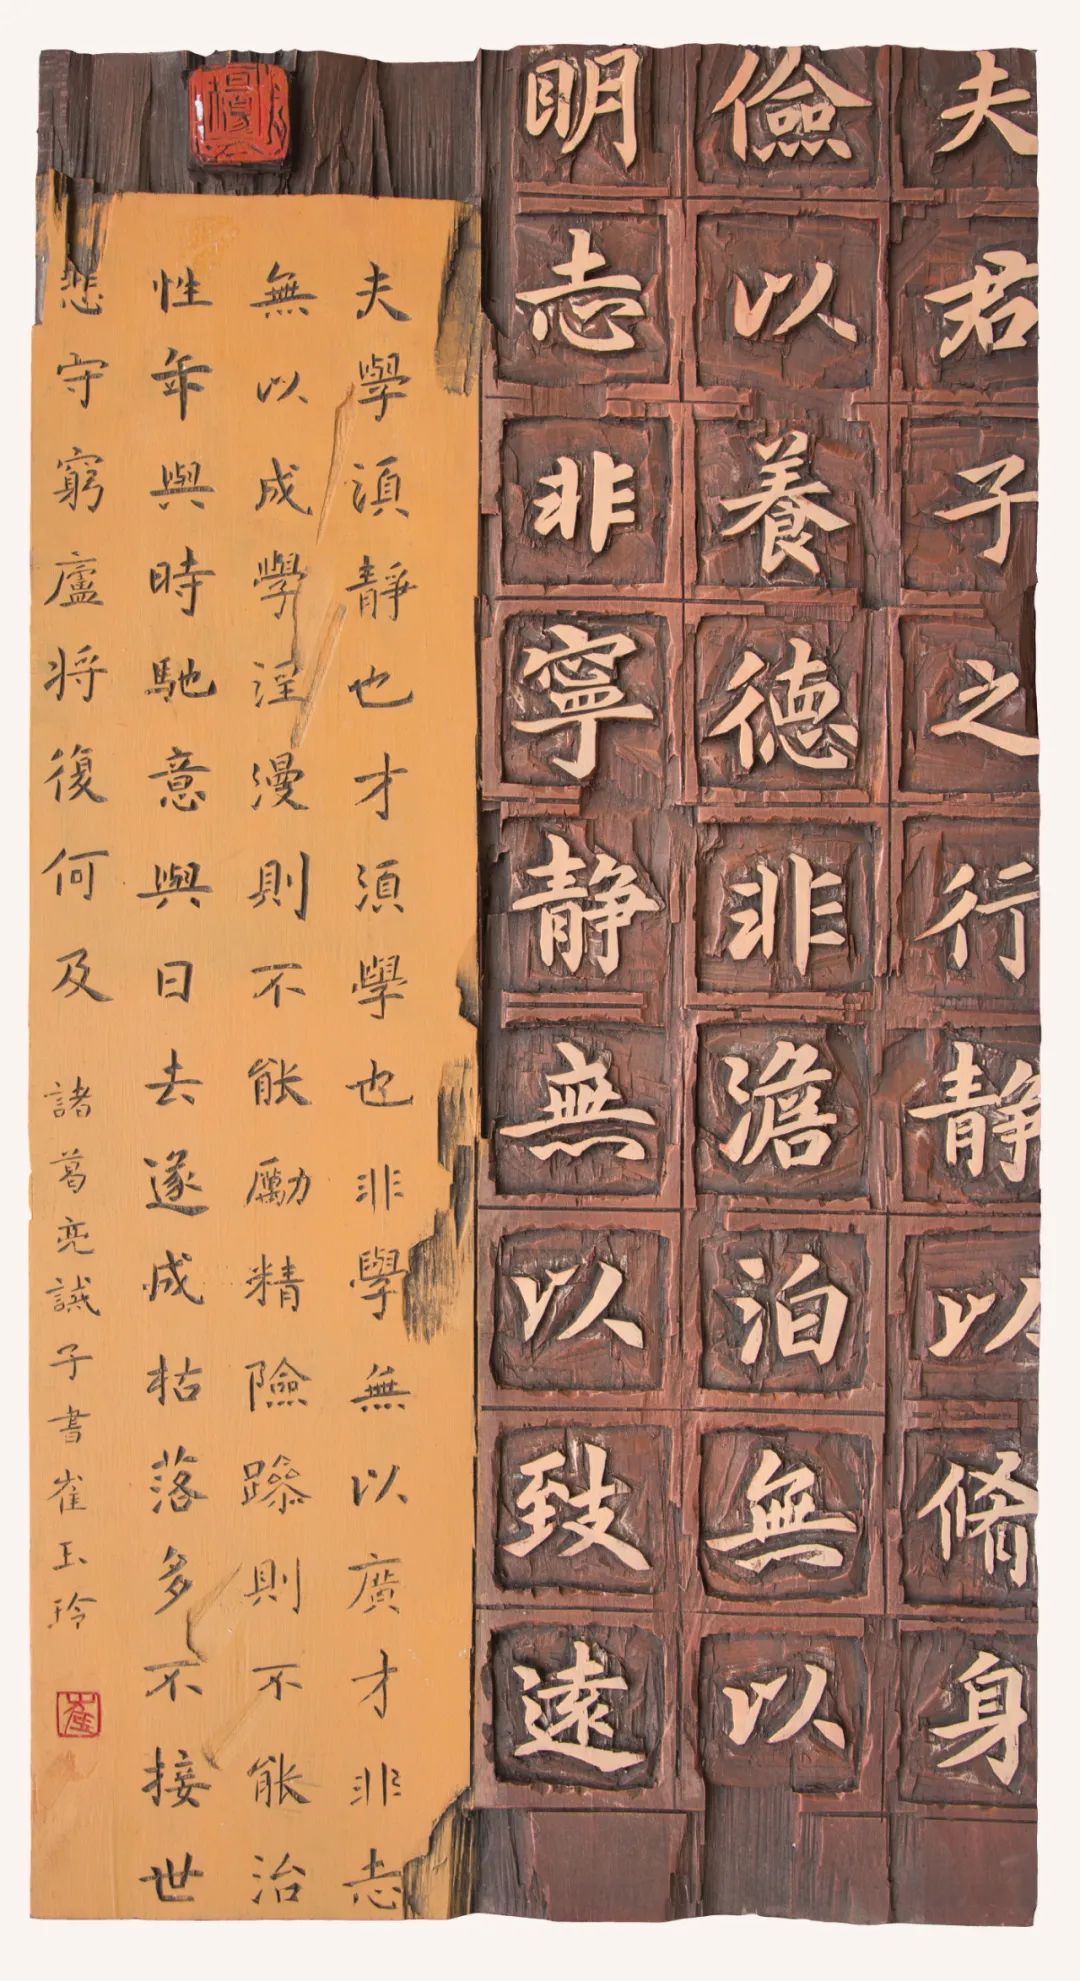 夫君子之行静以脩身
儉以養徳非澹泊無以
明志非寧静無以致遠
夫學須静也才須學也非學無以廣才非志
無以成學淫漫則不能勵精險躁則不能治
性年與時馳意與日去遂成枯落多不接世
悲守窮廬将復何及 諸葛亮誡子書崔玉玲
崔